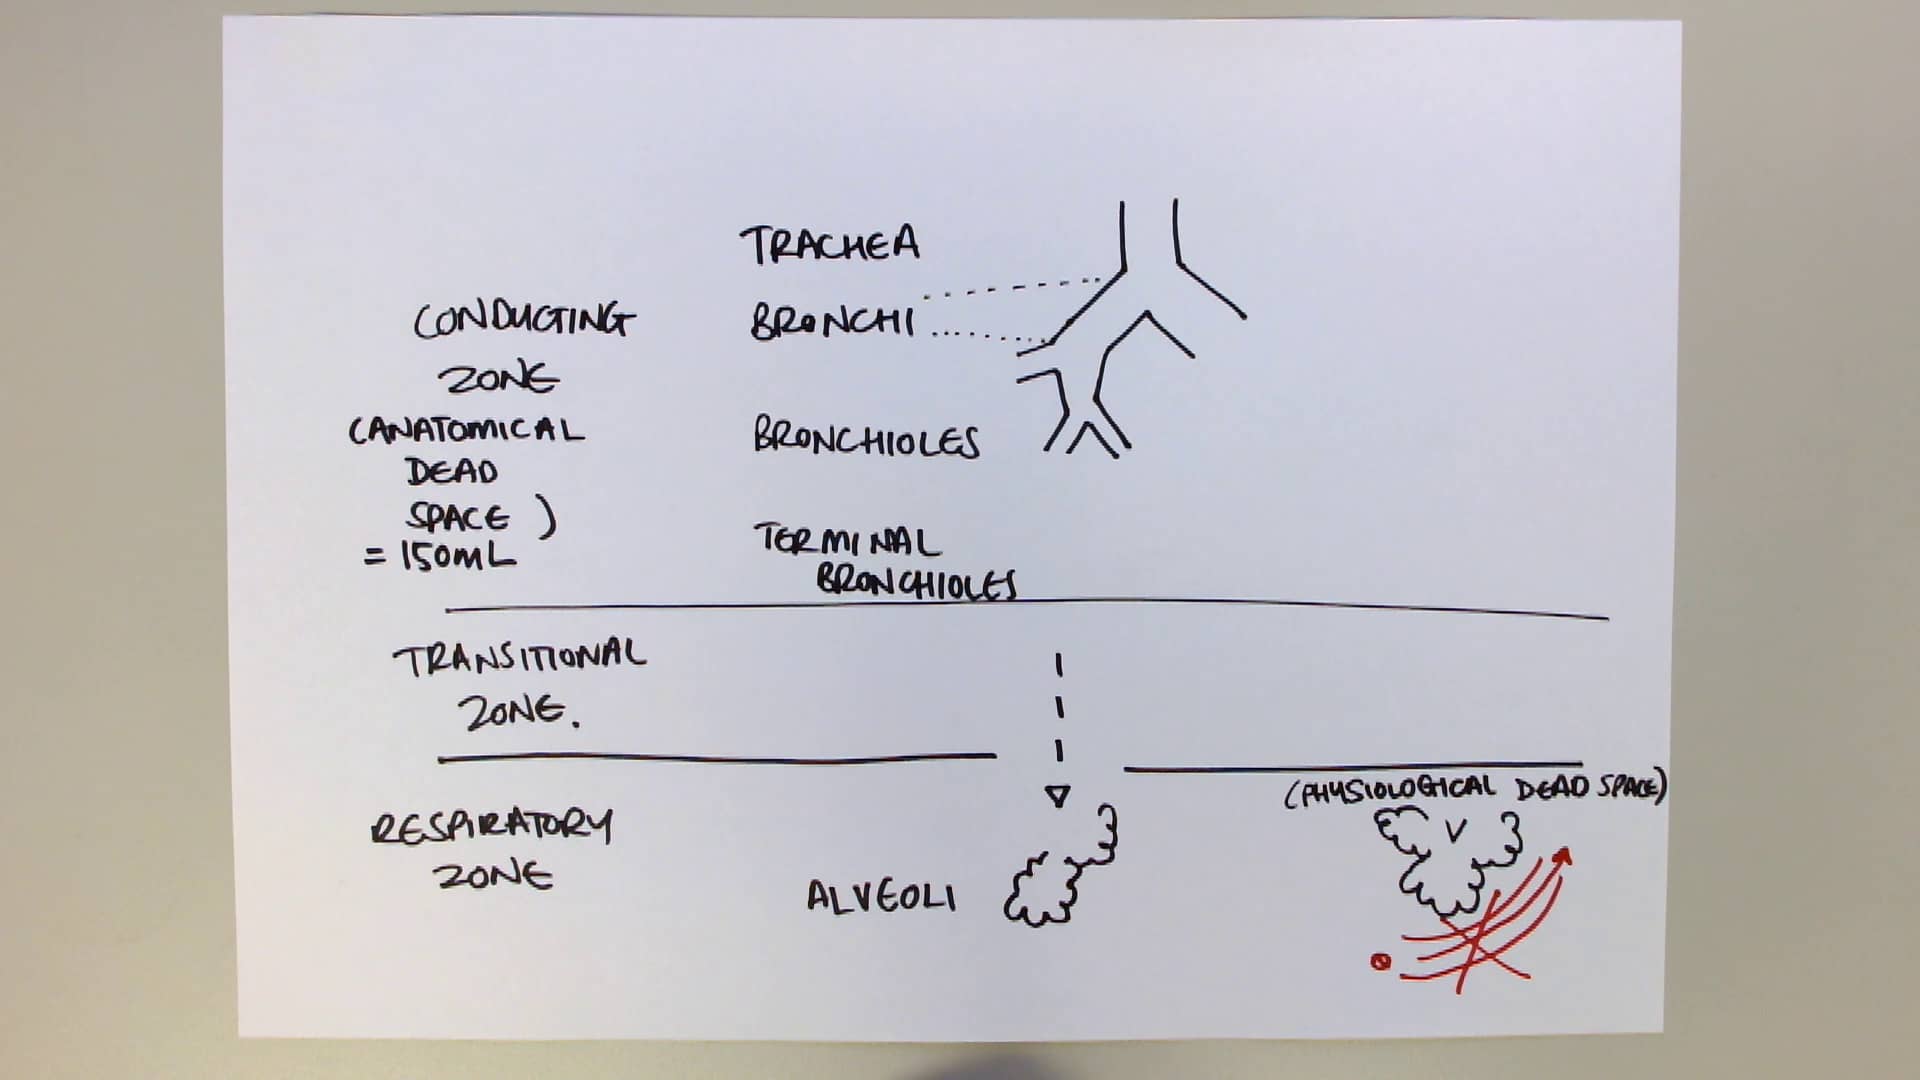 TRACHEA
CONDUCTING
ZONE
(ANATOMICAL
DEAD
SPACE )
= 150mL
BRONCHI
BRONCHIOLES
TERMINAL
BRONCHIOLES
TRANSITIONAL
ZONE.
RESPIRATORY
ZONE
ALVEOLI
(PHYSIOLOGICAL DEAD SPACE)
V